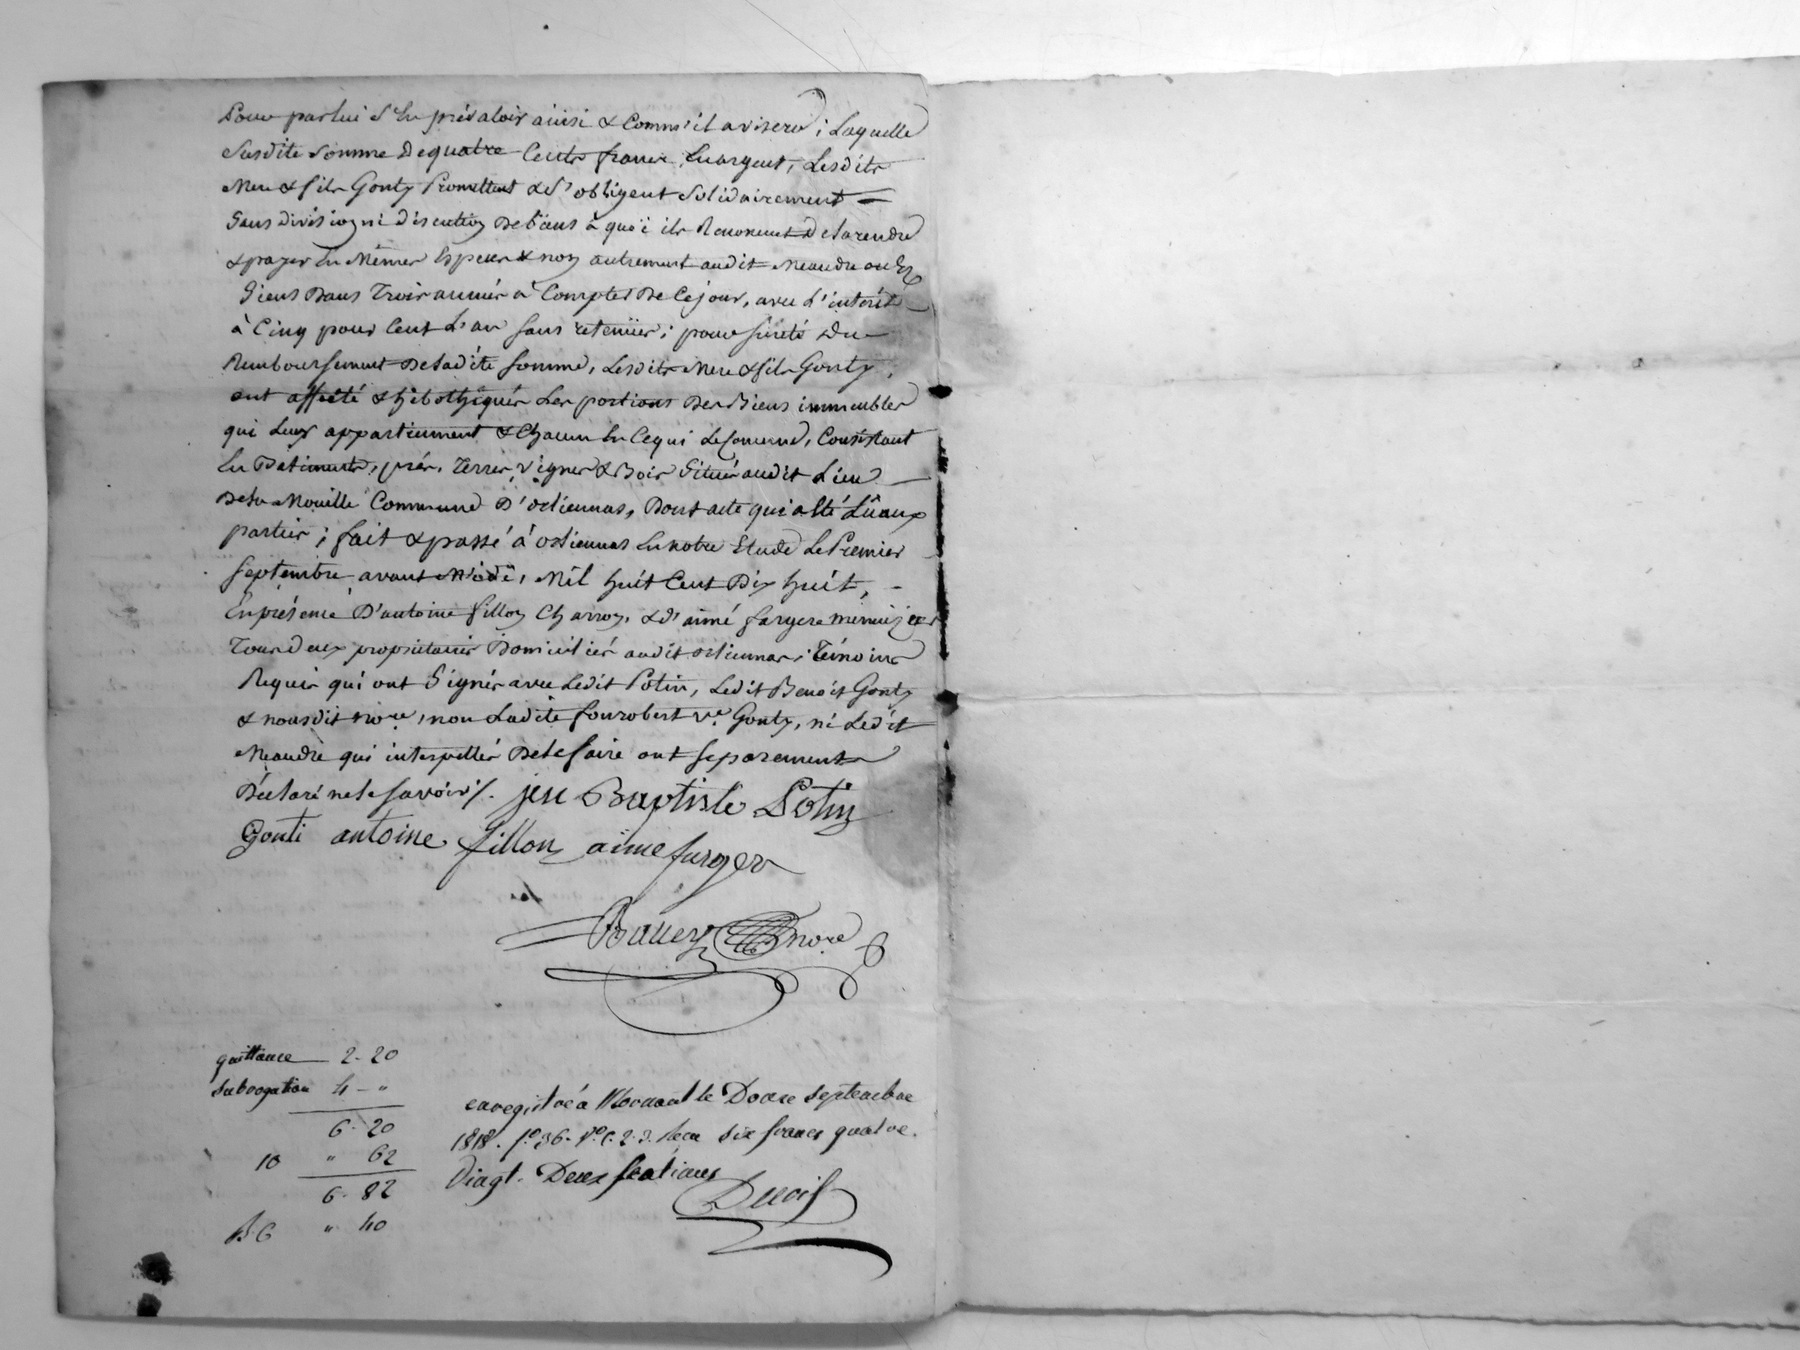 Pour par lui s'en prévaloir ainsi & Comm'il avisera ; Laquelle
Susdite Somme de quatre Cents francs, En argent, Lesdits
Mere & fils Gonty Promettent & S'obligent Solidairement
Sans division ni discution De biens à quoi ils Renoncent De la rendre
& payer En Mêmes Especes & non autrement audit Meaudre ou Es
Siens Dans Trois années à Compter De Ce jour, avec L'intérêt
à Cinq pour Cent L'an Sans retenüe ; pour Sureté Du
Remboursement De ladite Somme, Lesdits Mere & fils Gonty,
ont affecté & hibothéqués Les portions Des Biens immeubles
qui Leur appartiennent & Chacun En Ce qui Le Concerne, Consistant
En Bâtiments, prés, Terres, vignes & Bois Situés audit Lieu
De la Mouille Commune D'orliennas, Dont acte qui a Eté Lû aux
parties ; fait & passé à orliennas En notre Etude Le Premier
Septembre avant Midi, Mil huit Cent Dix huit,
En présence D'antoine fillon Charron, & d'aimé fargere menuizier
Tous Deux propriétaires Domiciliés audit orliennas ; Témoins
Requis qui ont Signés avec Ledit Potin, Ledit Benoit Gonty
& nousdit nore, non Ladite fourobert ve. Gonty, ni Ledit
Meaudre qui interpellés De le faire ont Séparement
Déclaré ne le Savoir /. jen Baptiste Potin
Gonti antoine fillon aime farger
nore
quittance 2-20
Subrogation 4 - "
6-20
10 " 62
6-82
" 40
enregistré à Mornant le Douze Septembre
1818. fo. 36. Vo. C. 2. 3. Recu Six francs quatre.
Vingt. Deux Centimes